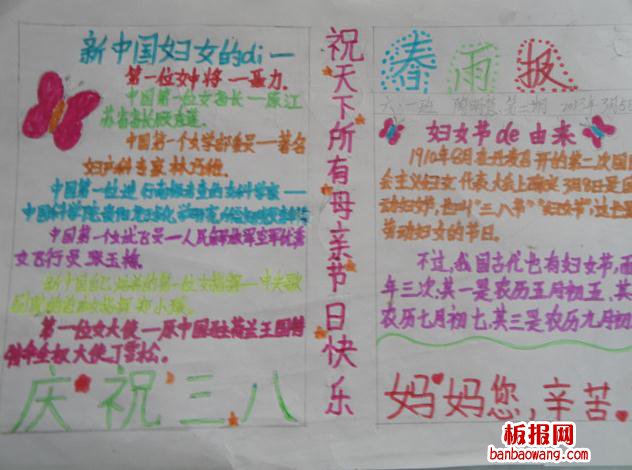 新中国妇女的di一
第一位女中将一聂力.
中国第一位女省长一原江
苏省省长顾秀莲.
中国第一个女学部委员一著名
妇产科专家林巧稚.
中国第一位进行南极考查的女科学家一
中国科学院
中国第一个女试飞员一人民解放军空军优秀
女飞行员
新中国自己培养的第一位女指挥一中央歌
剧院的首席女指挥郑小瑛.
第一位女大使一原中国驻荷兰王国特
命全权大使丁雪松.
庆祝三八
祝天下所有母亲节日快乐
春雨报
六·一班 第一期 2013年3月5日
妇女节de由来
1910年8月在丹麦召开的第二次国
会主义妇女代表大会上确定3月8日是国
动妇女节,也叫"三八节""妇女节",这也是
劳动妇女的节日。
不过,我国古代也有妇女节,而
年三次:其一是农历五月初五、其
农历七月初七、其三是农历九月初
妈妈您,辛苦.
板报网
banbaowang.com